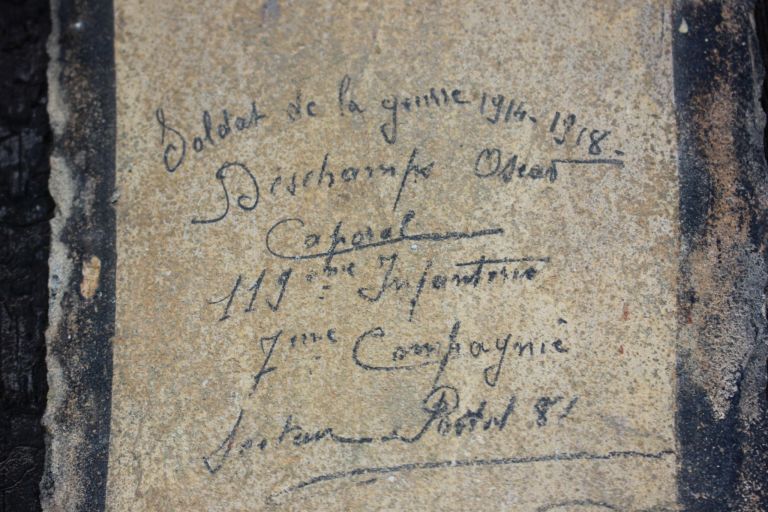 Soldat de la guerre 1914-1918.
Deschamps Oscar
Caporal
119ème Infanterie
7ème Compagnie
Secteur Postal 81